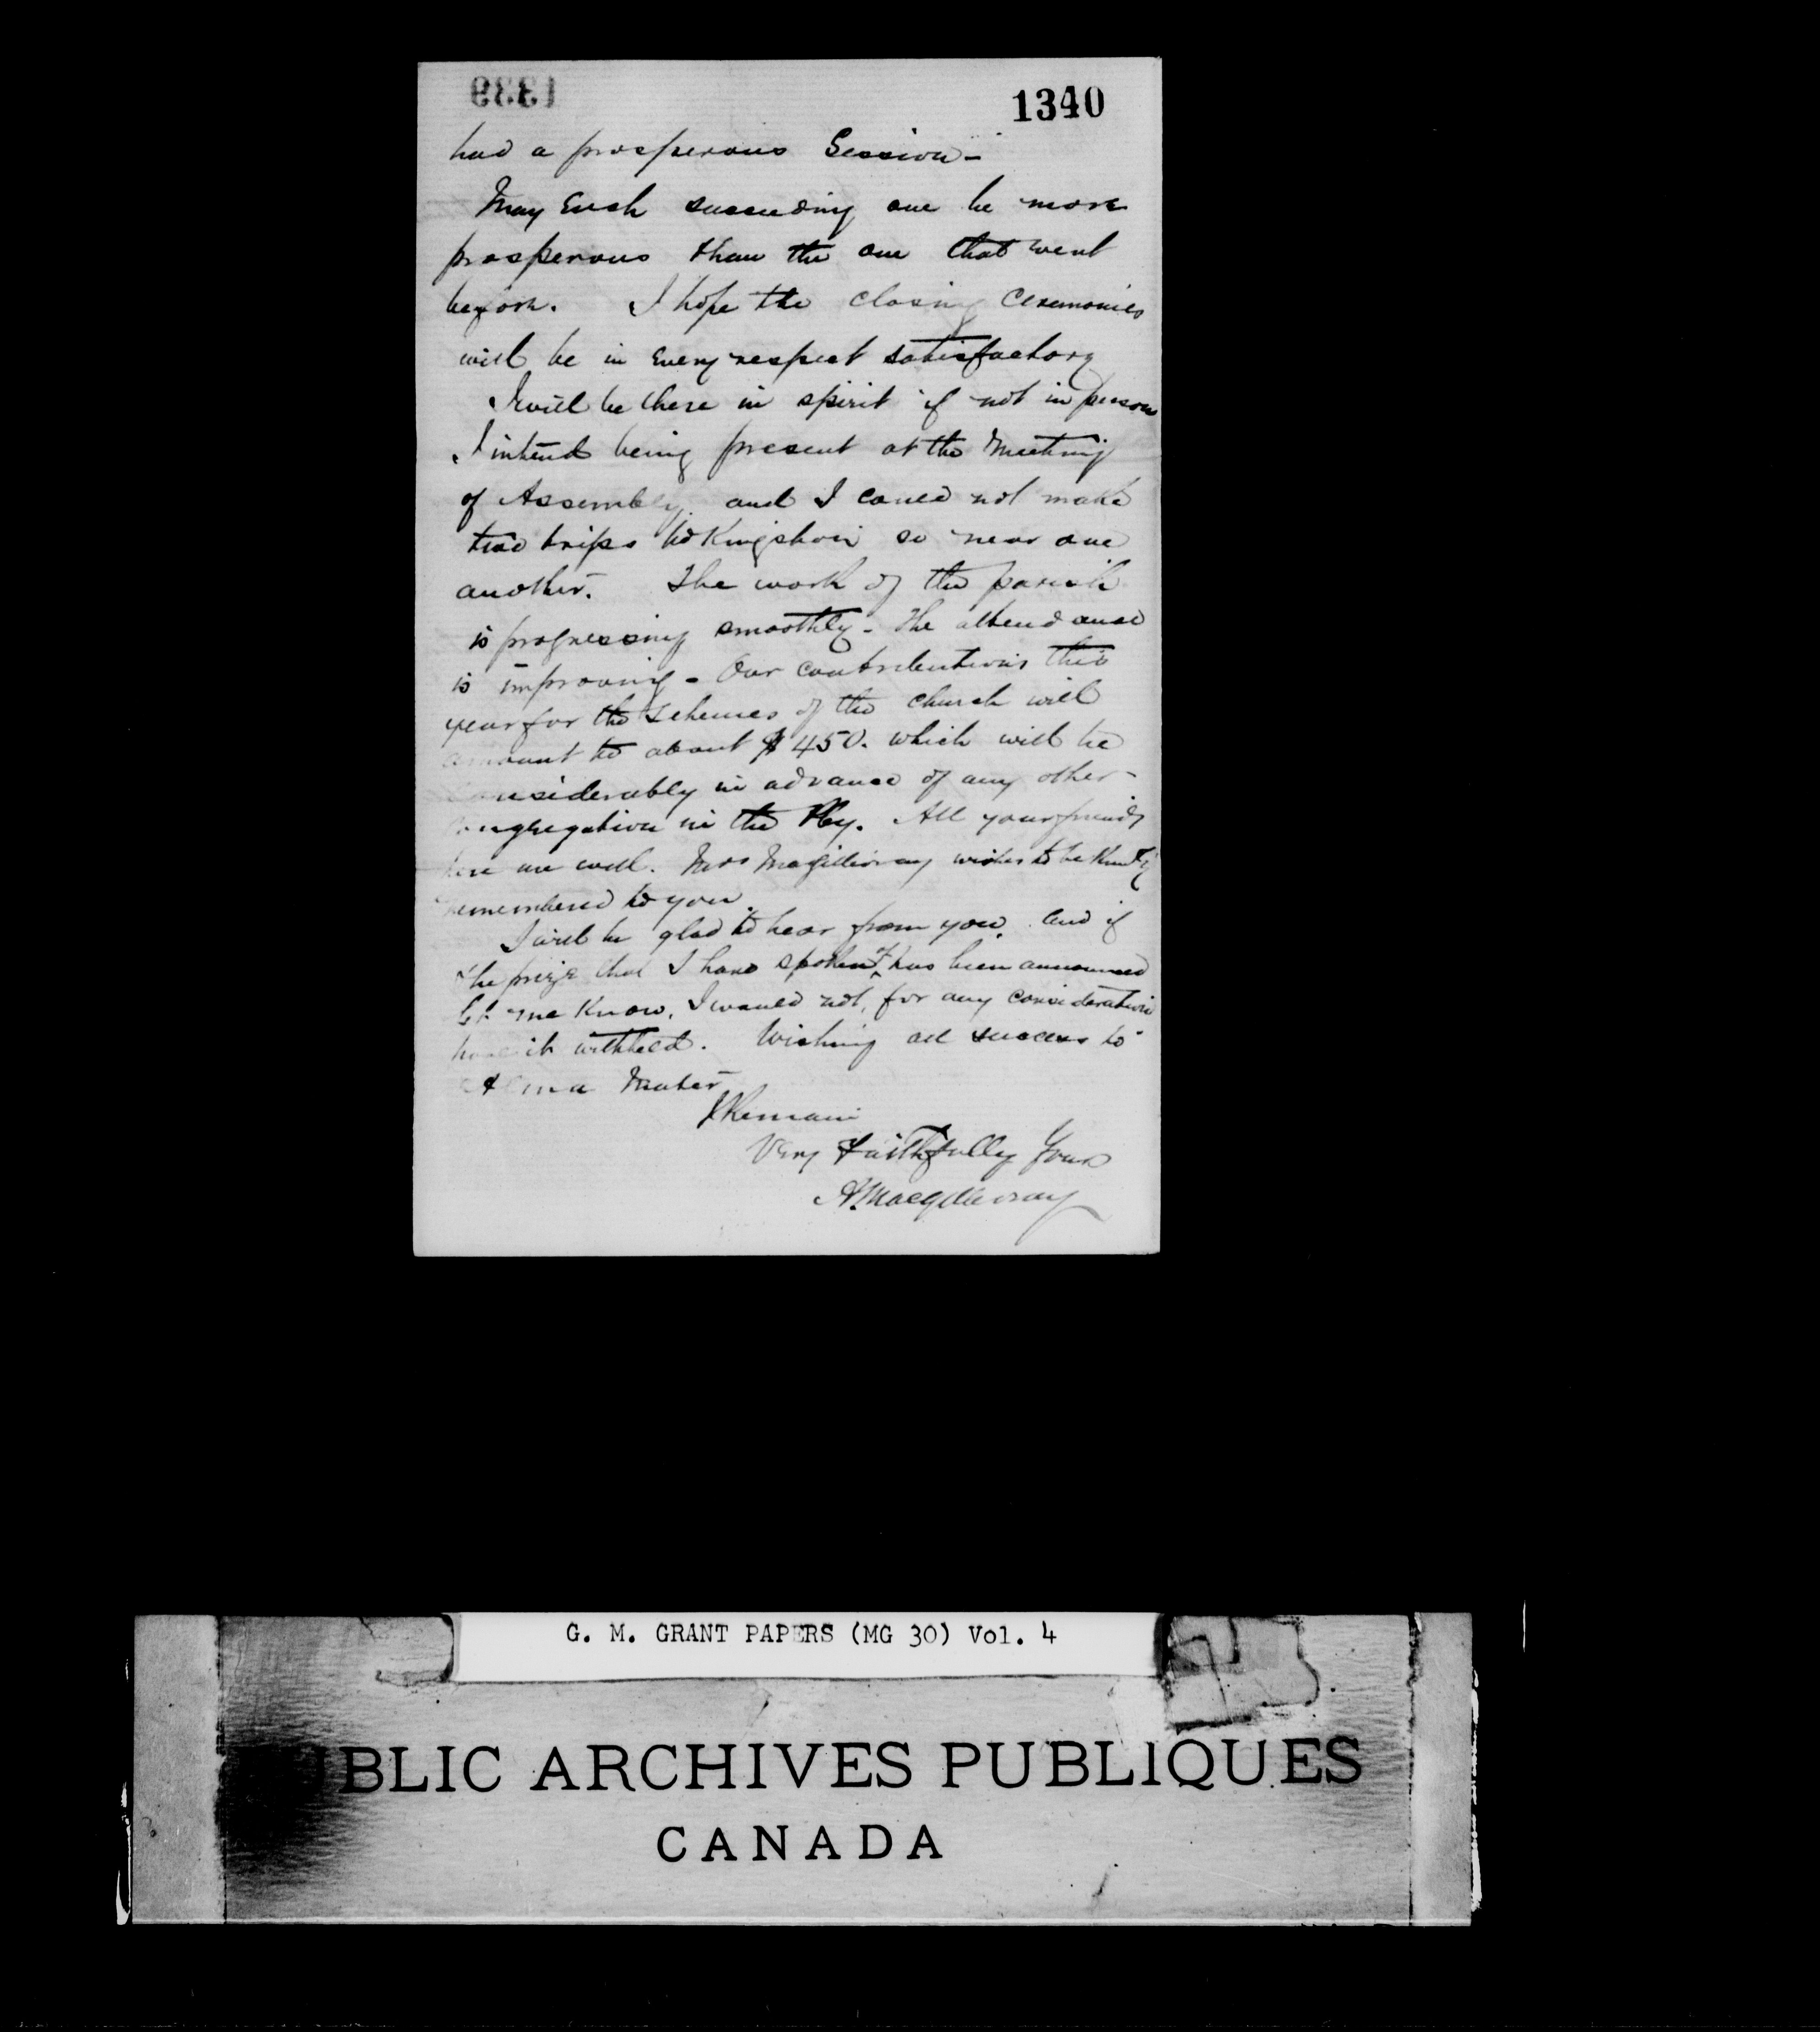 1339
1340
had a prosperous Session -
May Each succeeding one be more
prosperous than the one that went
before. I hope the closing Ceremonies
will be in Every respect satisfactory
I will be there in spirit if not in person
I intend being present at the Meeting
of Assembly, and I could not make
two trips to Kingston so near one
another. The work of the parish
is progressing smoothly - The attendance
is improving - Our contributions this
year for the Schemes of the Church will
amount to about $450. which will be
considerably in advance of any other -
congregation in the Pby. All your friends
here are well. Mrs Macgillivray wishes to be kindly
remembered to you.
I will be glad to hear from you. And if
the prize that I have spoken of has been announced
let me know, I would not, for any consideration
have it withheld. Wishing all success to
Alma Mater
I Remain
Very Faithfully Yours
A. Macgillivray
G. M. GRANT PAPERS (MG 30) Vol. 4
PUBLIC ARCHIVES PUBLIQUES
CANADA